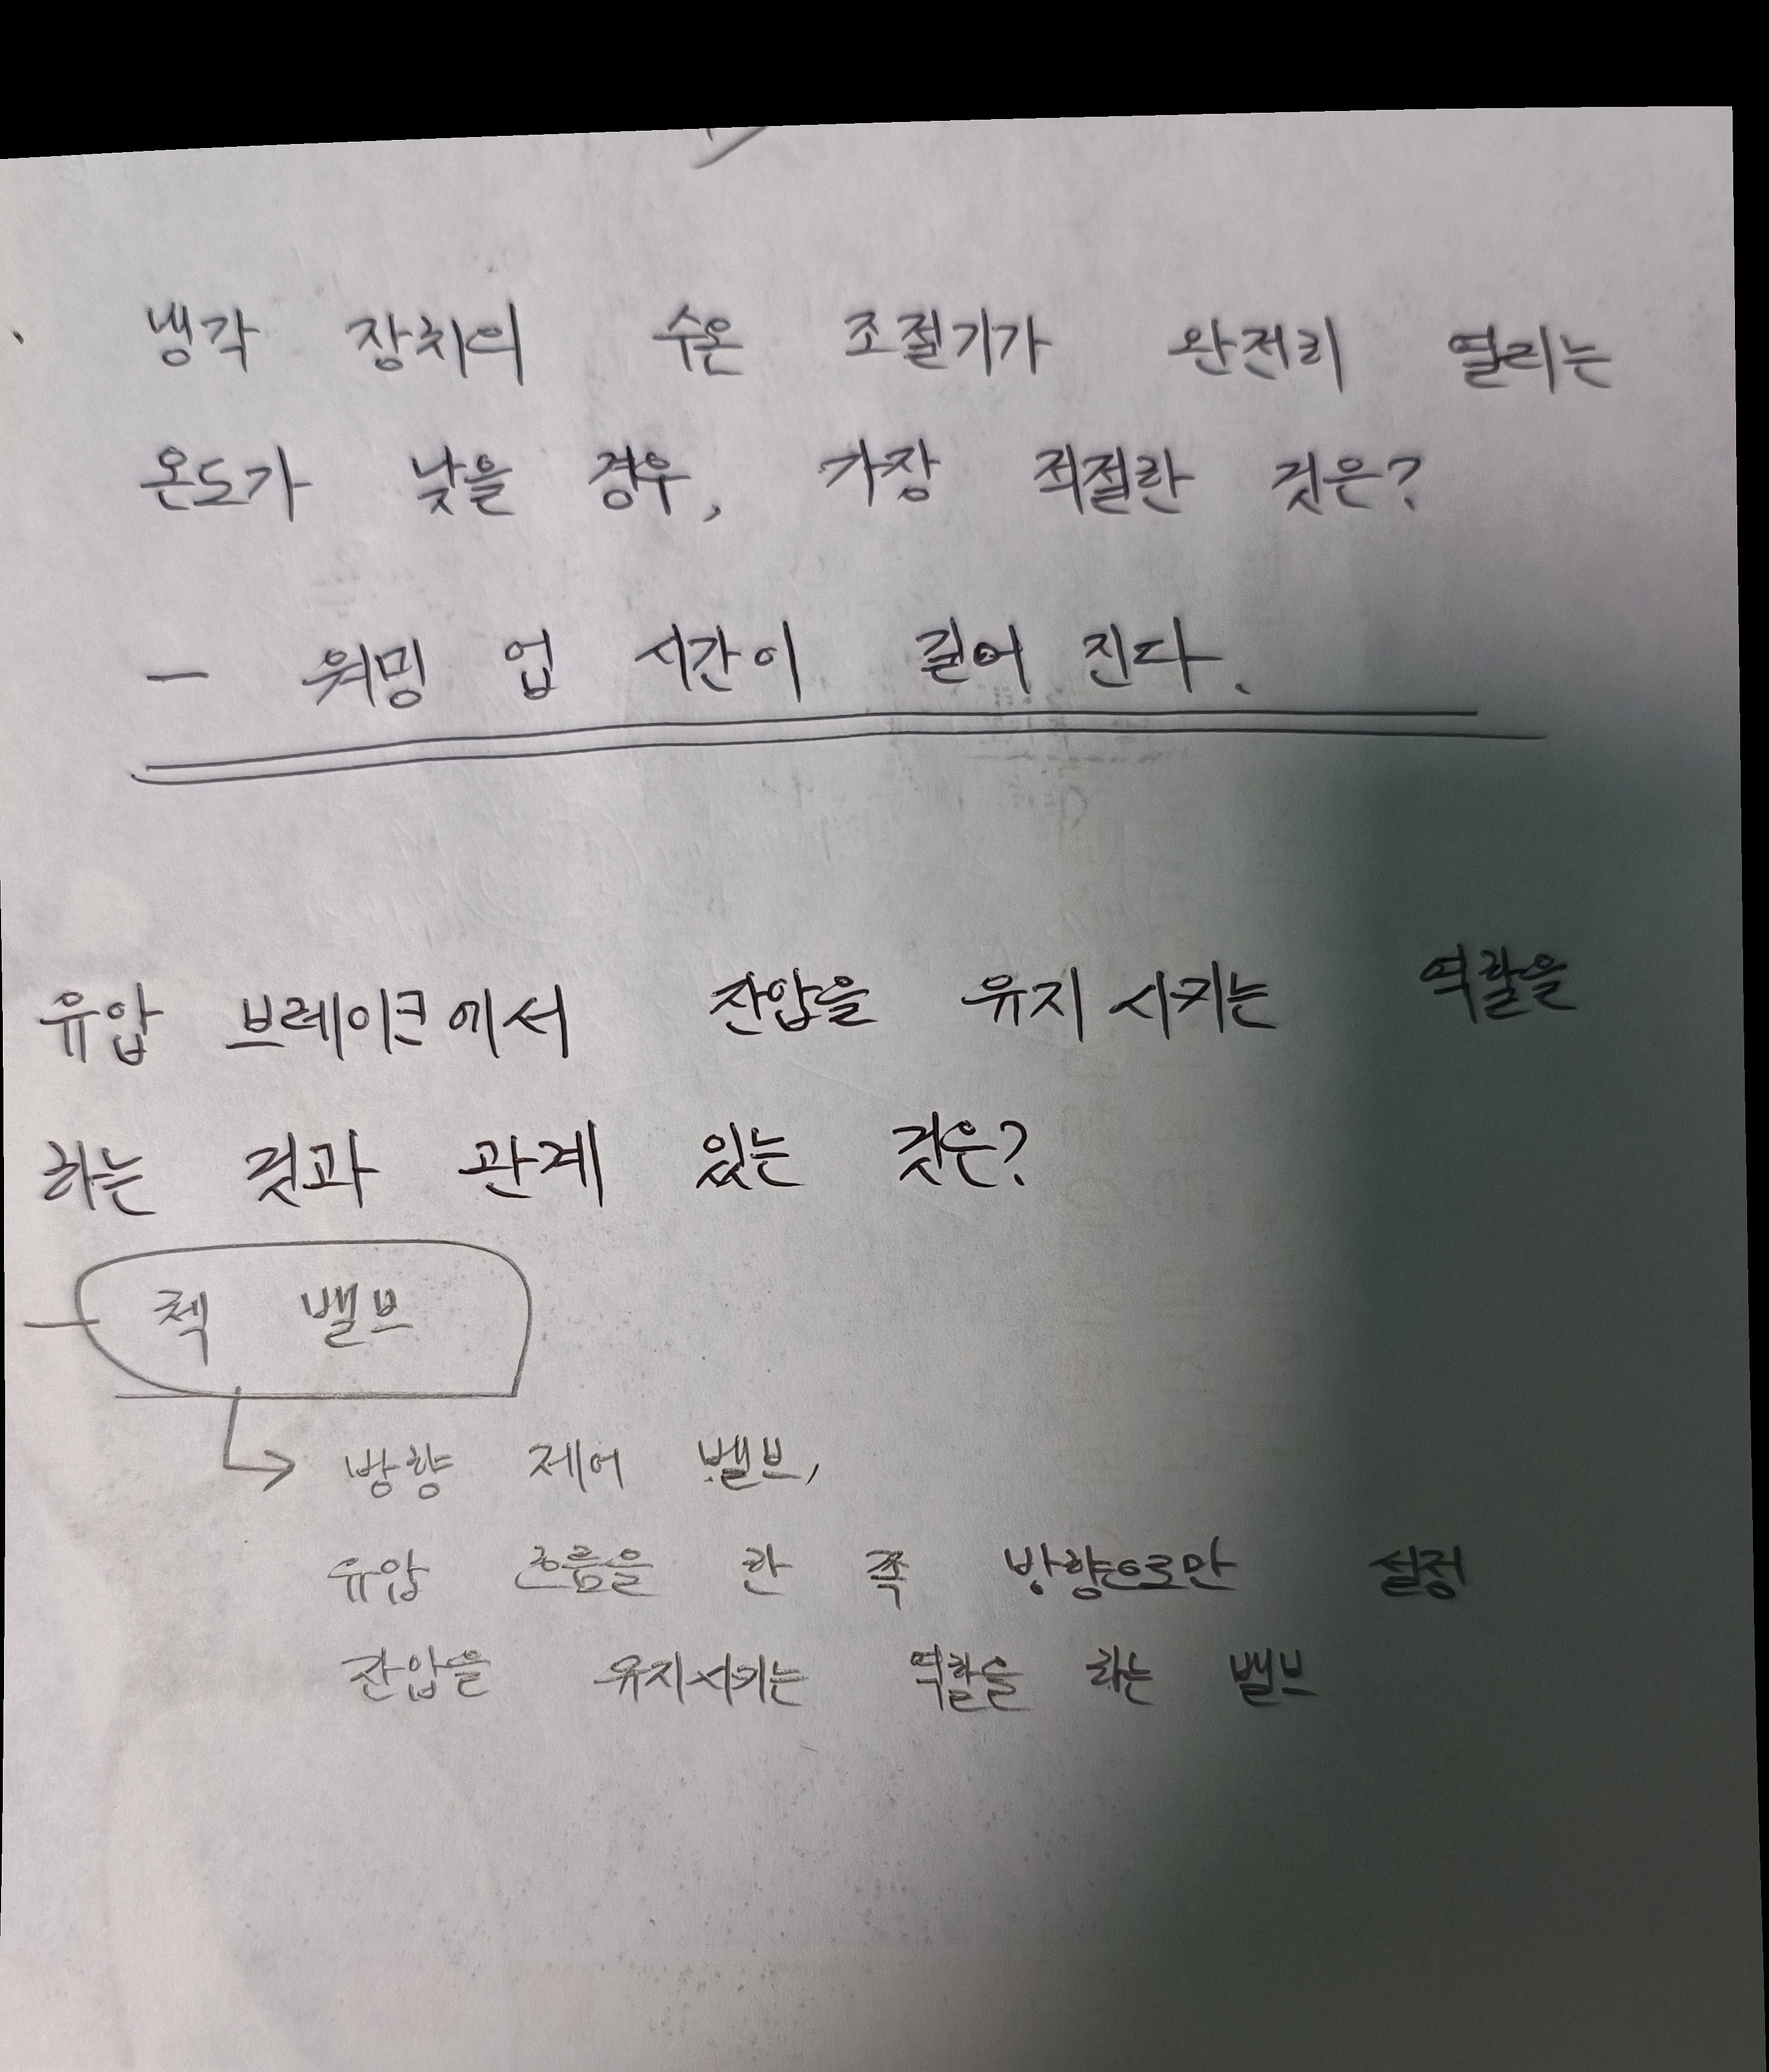 냉각 장치의 수온 조절기가 완전히 열리는
온도가 낮을 경우, 가장 적절한 것은?
- 워밍 업 시간이 길어 진다.
유압 브레이크에서 잔압을 유지 시키는 역할을
하는 것과 관계 있는 것은?
- 첵 밸브
→ 방향 제어 밸브,
유압 흐름을 한 쪽 방향으로만 설정
잔압을 유지시키는 역할을 하는 밸브